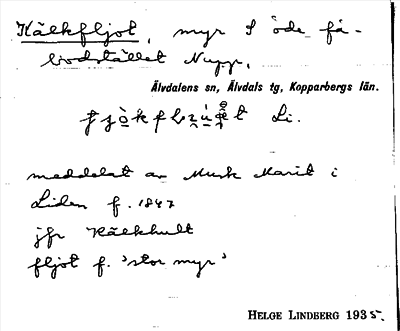 Kälkfljot, myr S öde få-
bodstället Nupp,
Älvdalens sn, Älvdals tg, Kopparbergs län.
Li.
meddelat av Musk Marit i
Liden f. 1847
jfr Kälkhult
fljot f. 'stor myr'
HELGE LINDBERG 1935.